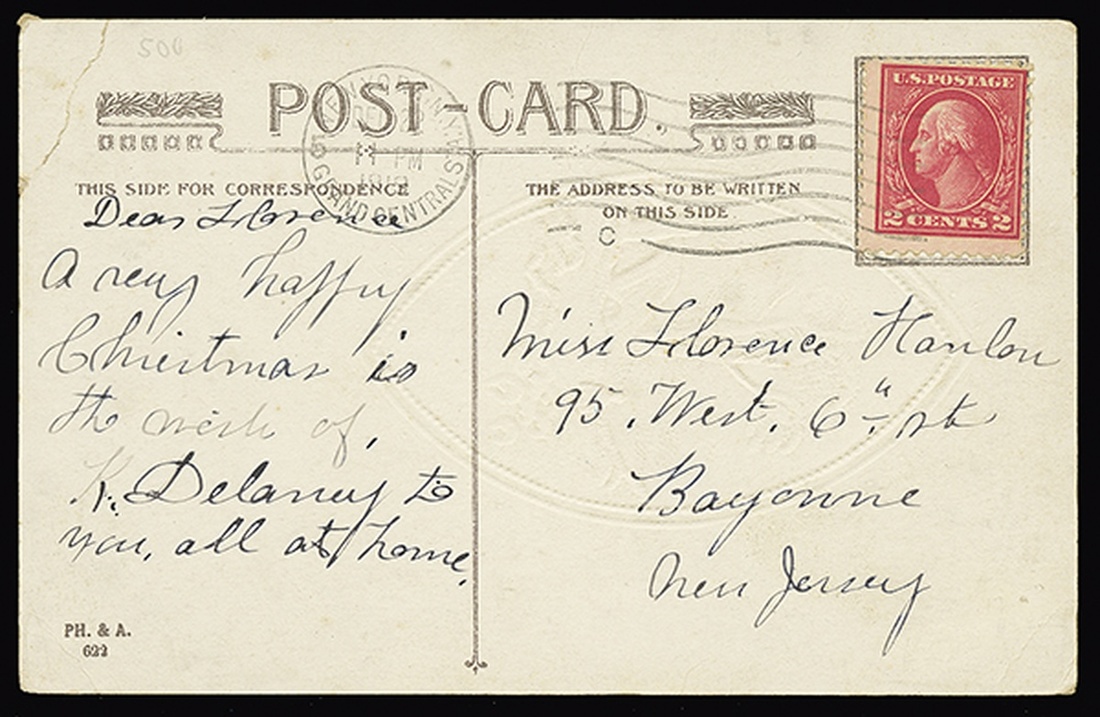 500
POST-CARD.
GRAND CENTRAL STA.
PM
THIS SIDE FOR CORRESPONDENCE
Dear Florence
A very happy
Christmas is
the wish of,
K. Delaney to
you, all at home.
PH. & A.
622
U.S.POSTAGE
2 CENTS 2
THE ADDRESS TO BE WRITTEN
ON THIS SIDE
C
Miss Florence Hanlon
95. West. 6" st
Bayonne
New Jersey